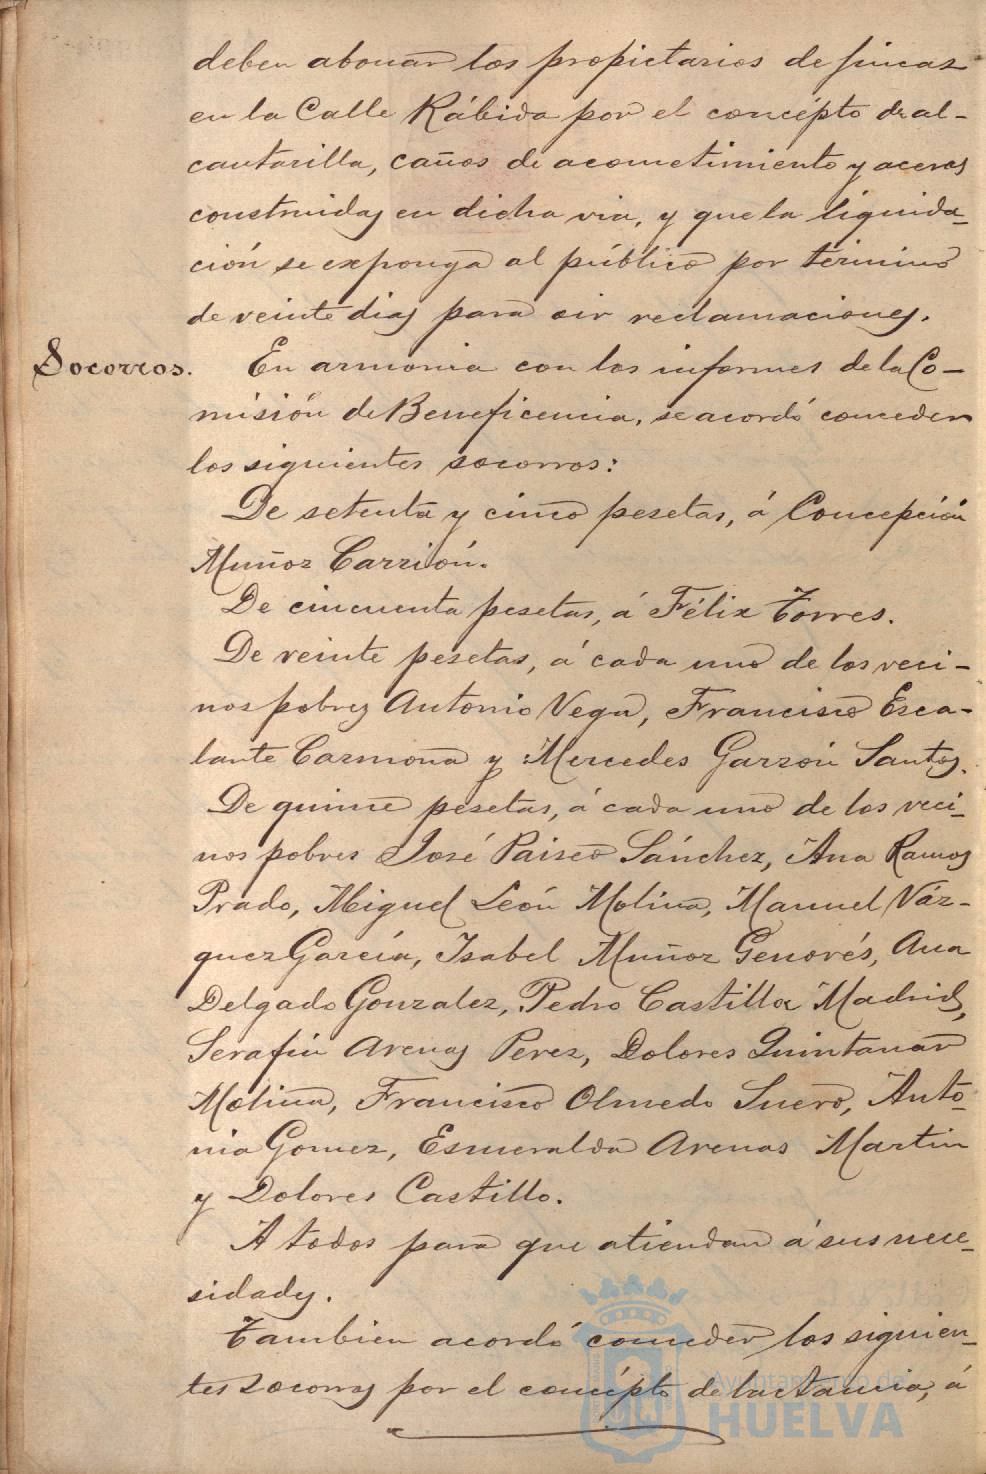 deben abonar los propietarios de fincas
en la Calle Rábida por el concépto de al-
cantarilla, caños de acometimiento y aceras
construidas en dicha via, y que la liquida-
ción se exponga al público por término
de veinte dias para oir reclamaciones.
Socorros. En armonia con los informes de la Co-
misión de Beneficencia, se acordó conceder
los siguientes socorros:
De setenta y cinco pesetas, á Concepción
Muñoz Carrión.
De cincuenta pesetas, á Félix Torres.
De veinte pesetas, á cada uno de los veci-
nos pobres Antonio Vega, Francisco Esca-
lante Carmona y Mercedes Garzón Santos.
De quince pesetas, á cada uno de los veci-
nos pobres José Paisco Sánchez, Ana Ramos
Prado, Miguel León Molina, Manuel Váz-
quez García, Isabel Muñoz Genovés, Ana
Delgado Gonzalez, Pedro Castilla Madrid,
Serafin Arenas Perez, Dolores Quintanar
Molina, Francisco Olmedo Suero, Anto-
nia Gomez, Esmeralda Arenas Martin
y Dolores Castillo.
A todos para que atiendan á sus nece-
sidades.
Tambien acordó conceder los siguien-
tes socorros por el concépto de lactancia, á
Ayuntamiento de
HUELVA